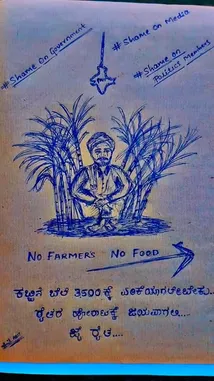 # Shame On Government
# Shame On Media
# Shame on
Politics Members
NO FARMERS NO FOOD
ಕಬ್ಬಿನ ಬೆಲೆ 3500ಕ್ಕೆ ಏರಿಕೆಯಾಗಲೇಬೇಕು..
ರೈತರ ಹೋರಾಟಕ್ಕೆ ಜಯವಾಗಲಿ...
ಜೈ ರೈತ....